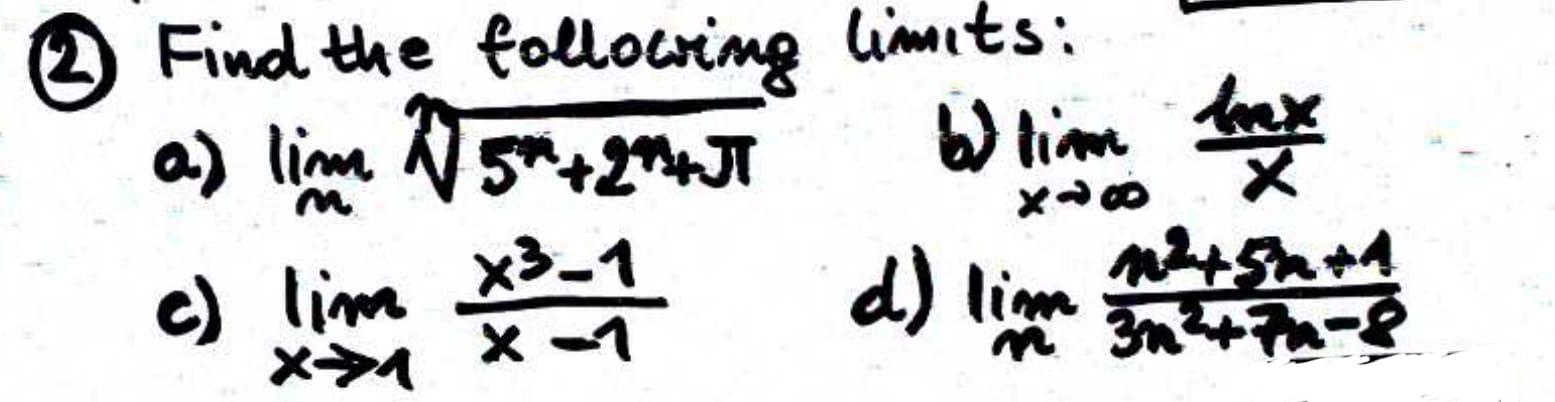 ② Find the following limits:
a) lim_n ⁿ√(5ⁿ+2ⁿ+π) b) lim_{x→∞} ln x / x
c) lim_{x→1} (x³-1)/(x-1) d) lim_n (n²+5n+1)/(3n²+7n-8)